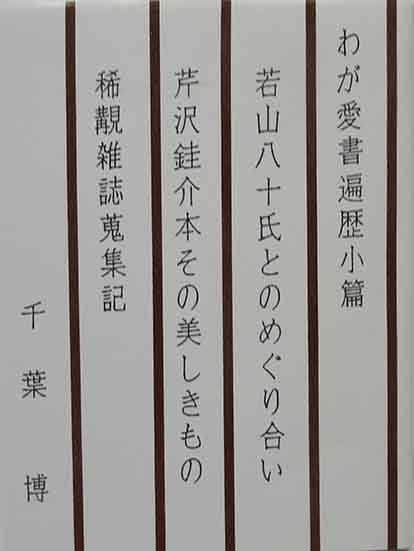 わが愛書遍歴小篇
若山八十氏とのめぐり合い
芹沢銈介本その美しきもの
稀覯雑誌蒐集記
千葉博